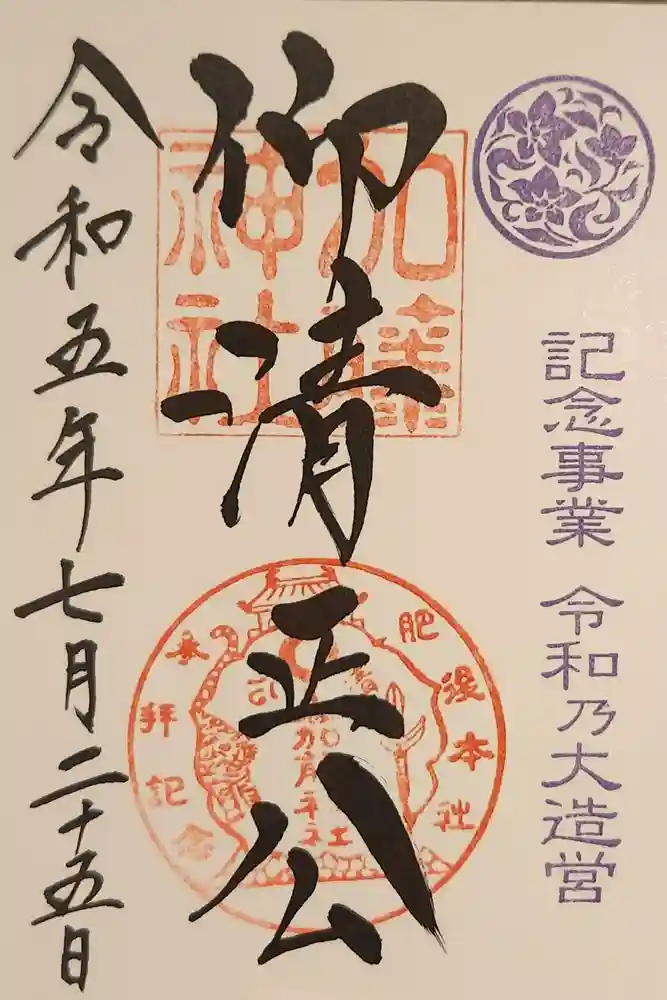 記念事業 令和乃大造営
仰清正公
加藤神社
肥後本社
参拝記念
令和五年七月二十五日